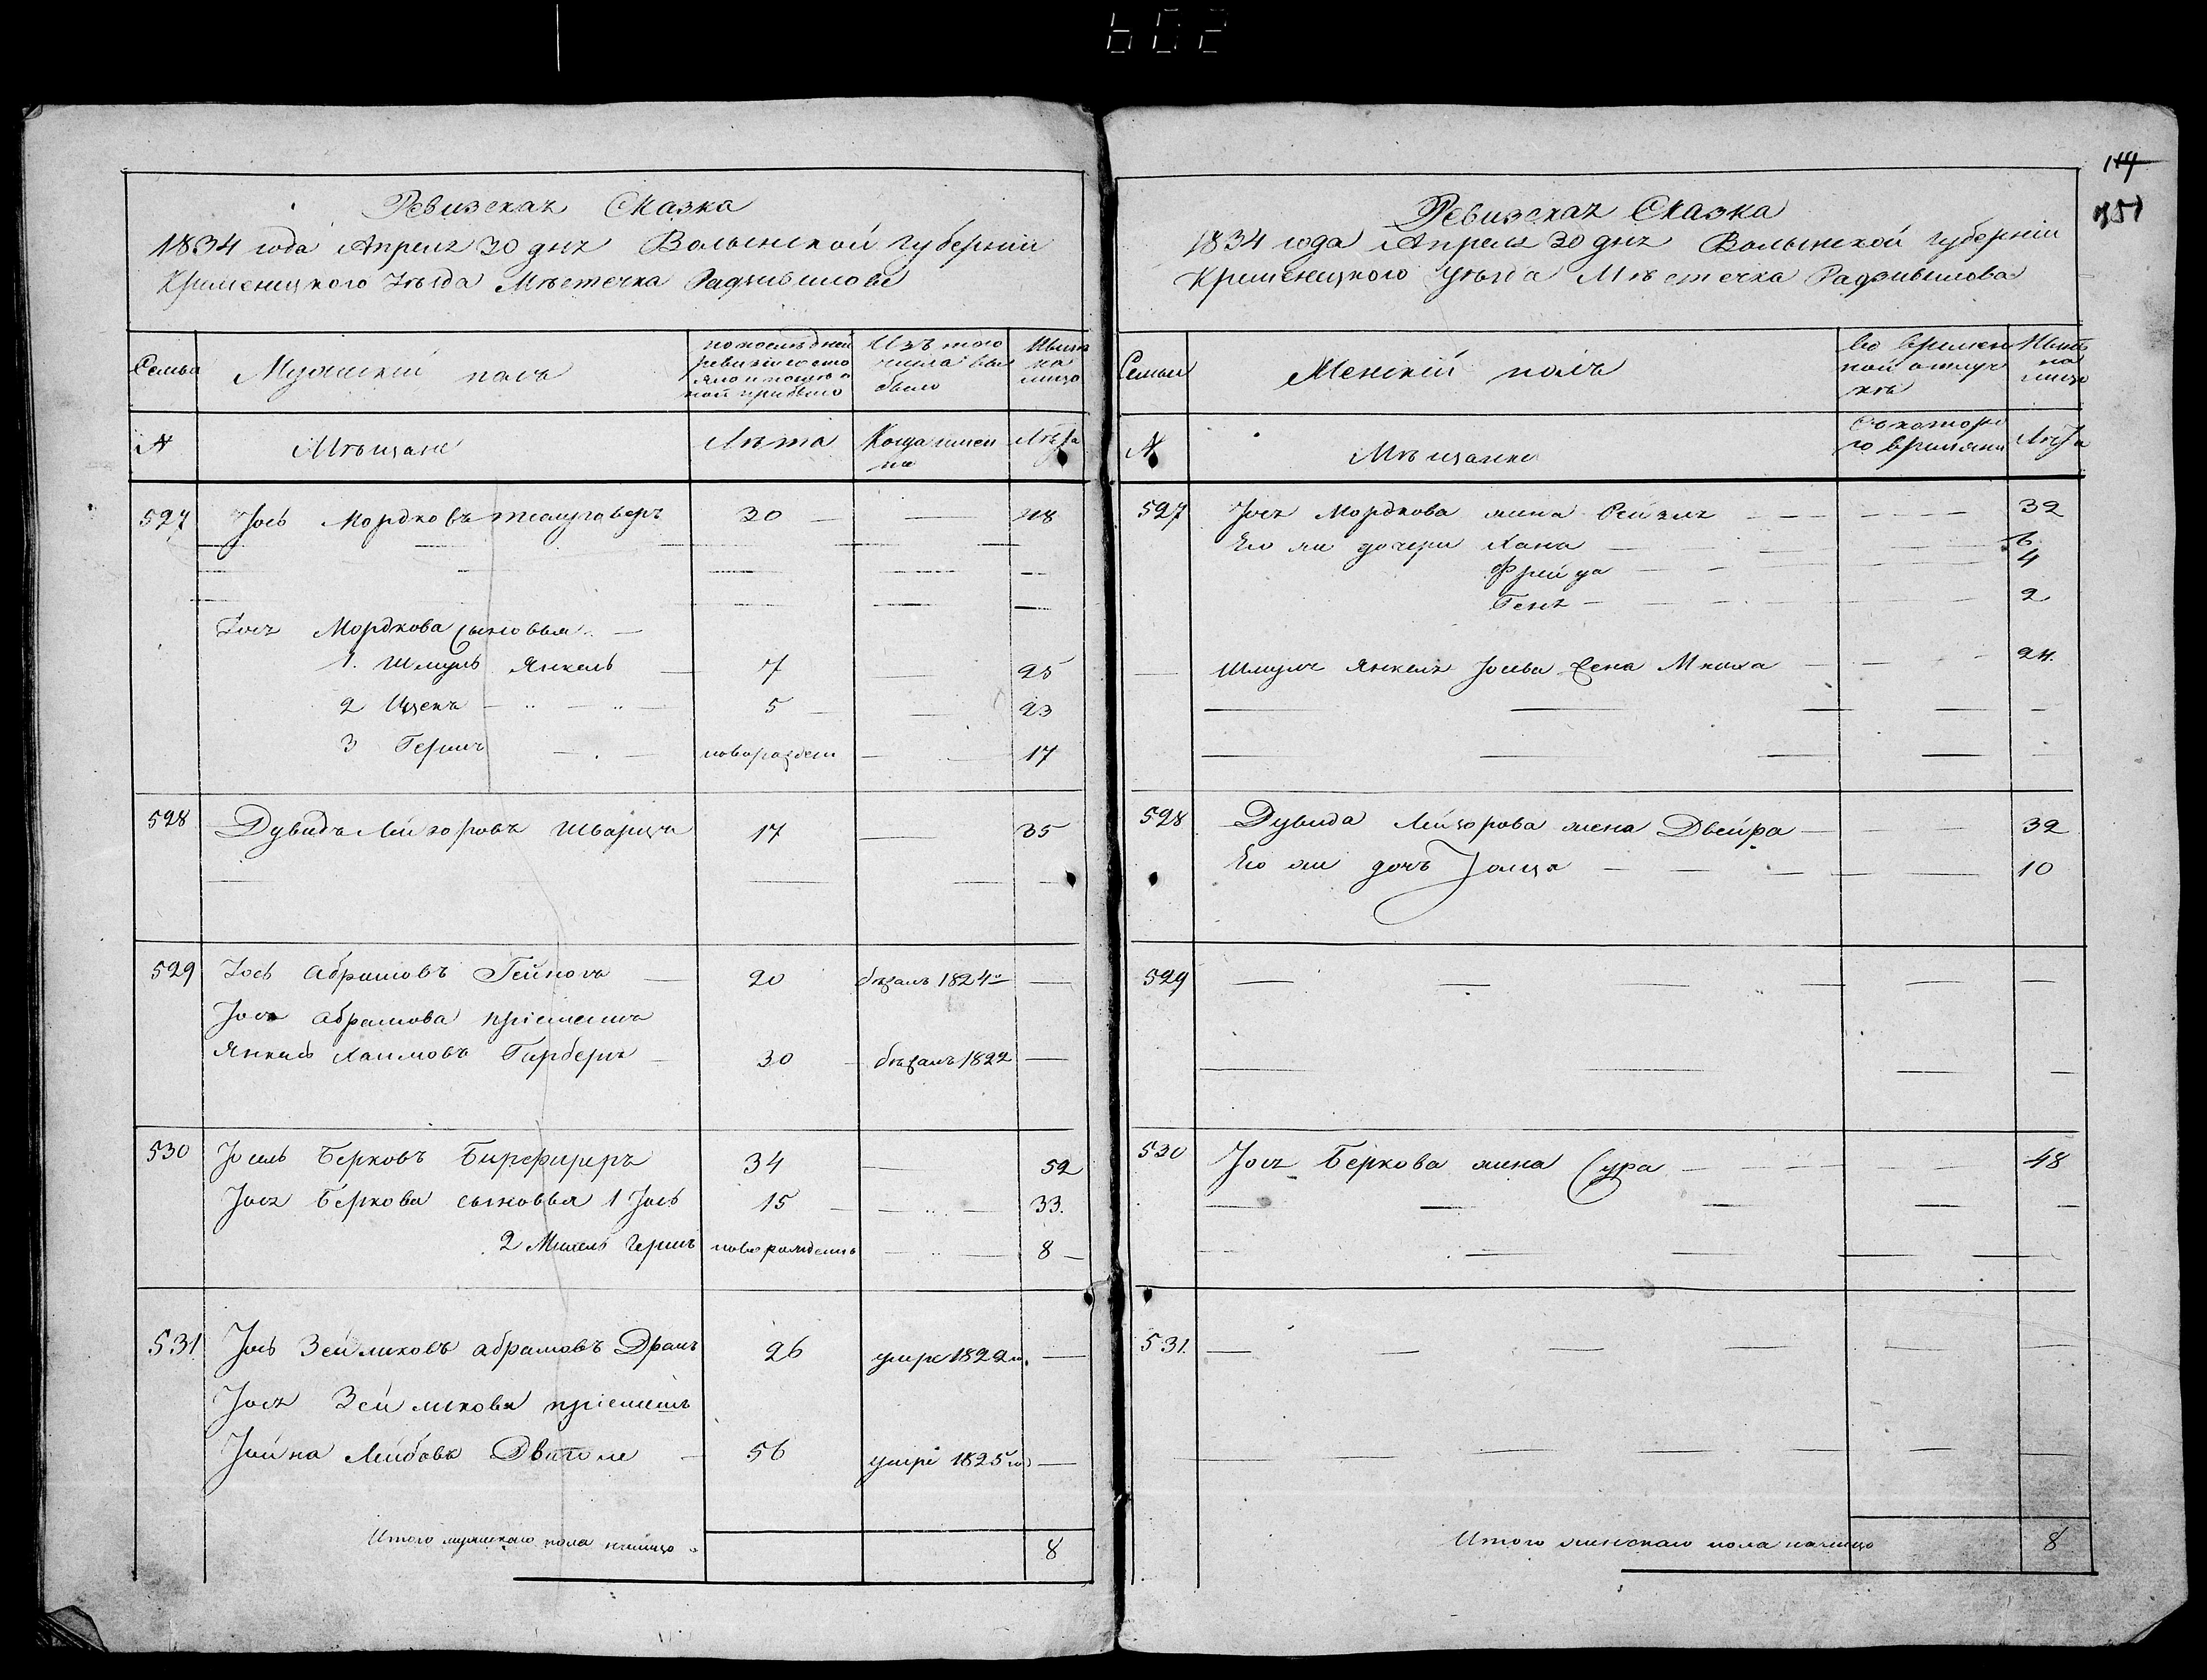 602
Ревизская Сказка
1834 года Апреля 30 дня Волынской губернiи
Кременецкого Уѣзда Мѣстечка Радзивилова
Семьи
Мужескiй полъ
По последней ревизiи состояло и после оной прибыло
Изъ того числа выбыло
Нынѣ на лицо
№
Мѣщане
Лѣта
Когда именно
Лѣта
527 Iось Мордковъ 30 — 48
Iося Мордкова сыновья
1. Шмуль Янкель 7 — 25
2 Ицекъ 5 — 23
3 Гершъ новорожден — 17
528 Дувидъ Лейзоровъ Шварцъ 17 — 35
529 Iось Абрамовъ 20 бѣжалъ 1824 —
Iося Абрамова прiемышъ
Янкель Хаимовъ Гарберъ 30 бѣжалъ 1822 —
530 Iосель Берковъ 34 — 52
Iося Беркова сыновья 1 Iось 15 — 33.
2 Михель Гершъ новорожденъ — 8
531 Iось Зейликовъ Абрамовъ 26 умре 1822 го. —
Iося Зейликова прiемышъ
Лейбовъ 56 умре 1825 го —
Итого мужескаго пола налицо 8
114
151
Ревизская Сказка
1834 года Апреля 30 дня Волынской губернiи
Кременецкого Уѣзда Мѣстечка Радзивилова
Семьи
Женскiй полъ
Во временной отлучкѣ
Нынѣ на лицо
№
Мѣщанки
Съ которого времяни
Лѣта
527 Iося Мордкова жена Рейзля 32
Его же дочери Хана 6
Фрейда 4
Геня 2
Шмуля Янкеля Iосева жена 24.
528 Дувида Лейзорова жена Двейра 32
Его же дочъ 10
529
530 Iося Беркова жена Сура 48
531.
Итого женскаго пола налицо 8